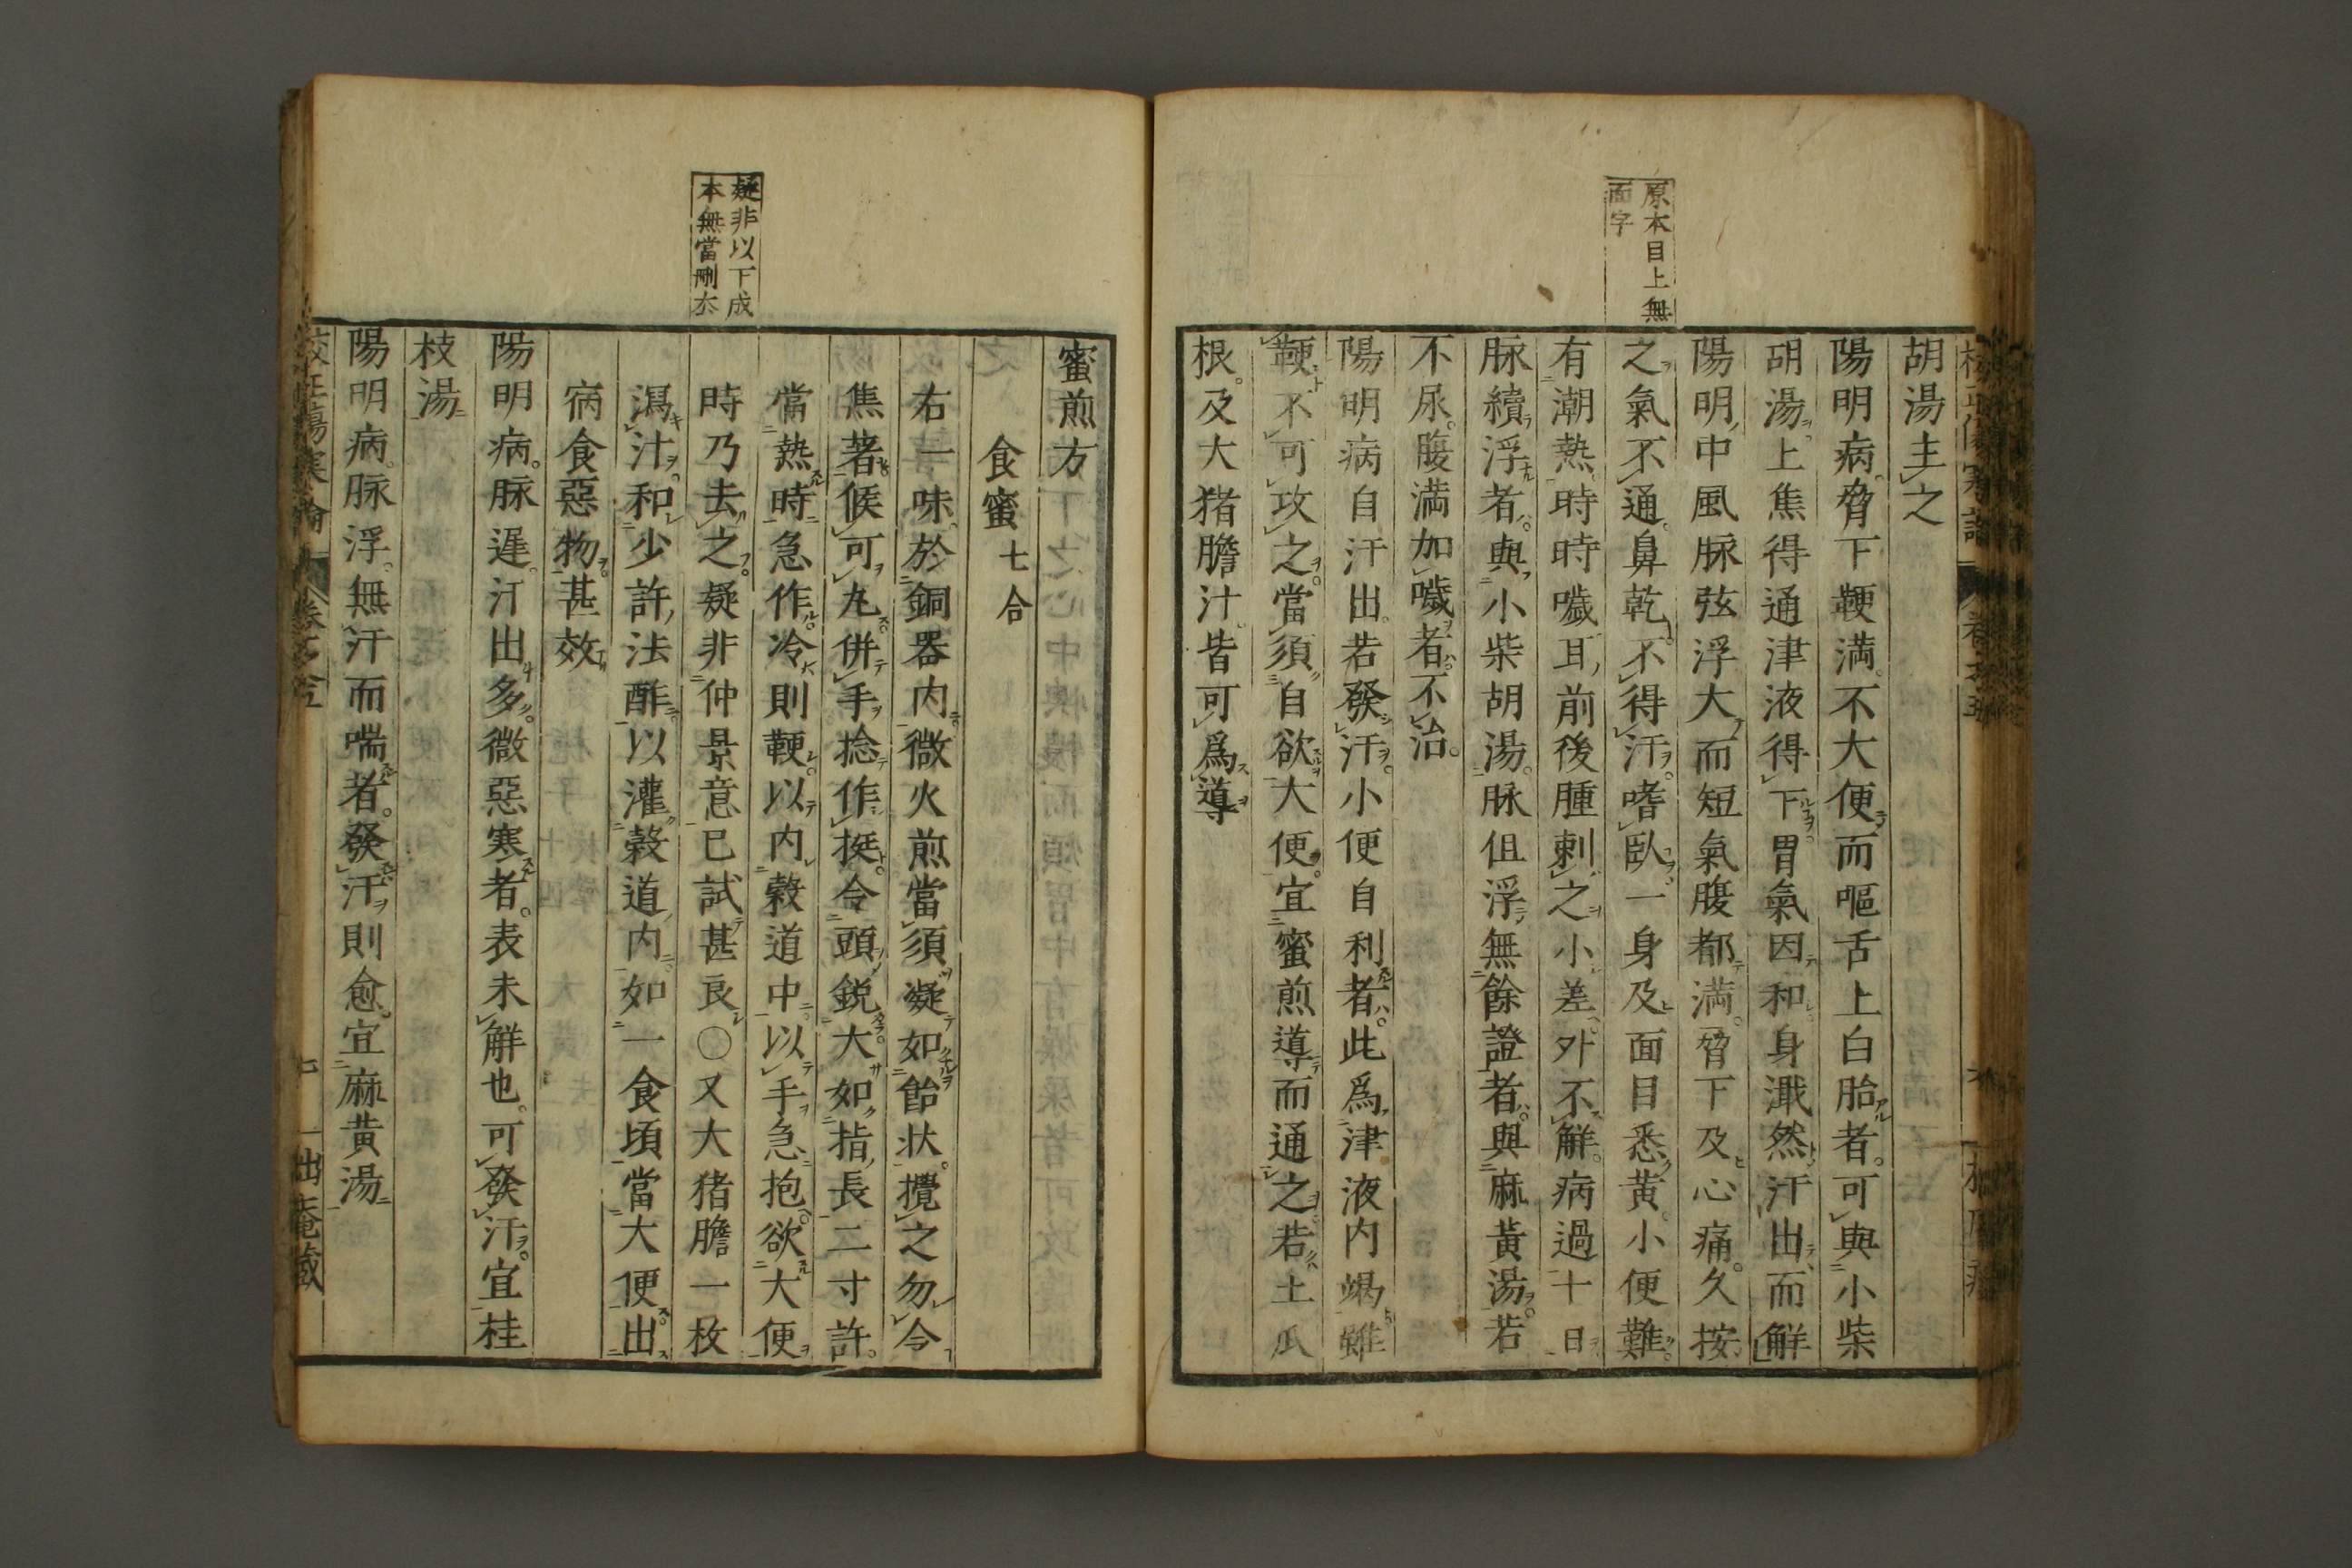 原本目上無
面字
胡湯主之
陽明病。脅下鞕満。不大便而嘔舌上白胎者。可與小柴
胡湯。上焦得通津液得下。胃氣因和身濈然汗出而解
陽明中風脉弦浮大而短氣腹都満。脅下及心痛。久按
之氣不通。鼻乾不得汗。嗜臥。一身及面目悉黄。小便難。
有潮熱時時噦耳前後腫刺之小差。外不解。病過十日
脉續浮者。與小柴胡湯。脉但浮無餘證者。與麻黄湯。若
不尿。腹満加噦者。不治。
陽明病自汗出。若發汗。小便自利者。此爲津液内竭雖
鞕不可攻之。當須自欲大便。宜蜜煎導而通之若土瓜
根。及大猪膽汁皆可爲導
疑非以下成
本無當刪厺
蜜煎方
食蜜七合
右一味。於銅器内。微火煎當須凝如飴状。攪之勿令
焦著。候可丸。併手捻作挺。令頭鋭。大如指長二寸許。
當熱時急作。冷則鞕。以内穀道中。以手急抱。欲大便
時乃去之。疑非仲景意已試甚良〇又大猪膽一枚
瀉汁。和少許法酢。以灌穀道内。如一食頃當大便出。
宿食惡物。甚效
陽明病。脉遲。汗出多。微惡寒者。表未解也。可發汗。宜桂
枝湯
陽明病。脉浮。無汗而喘者。發汗則愈。宜麻黄湯